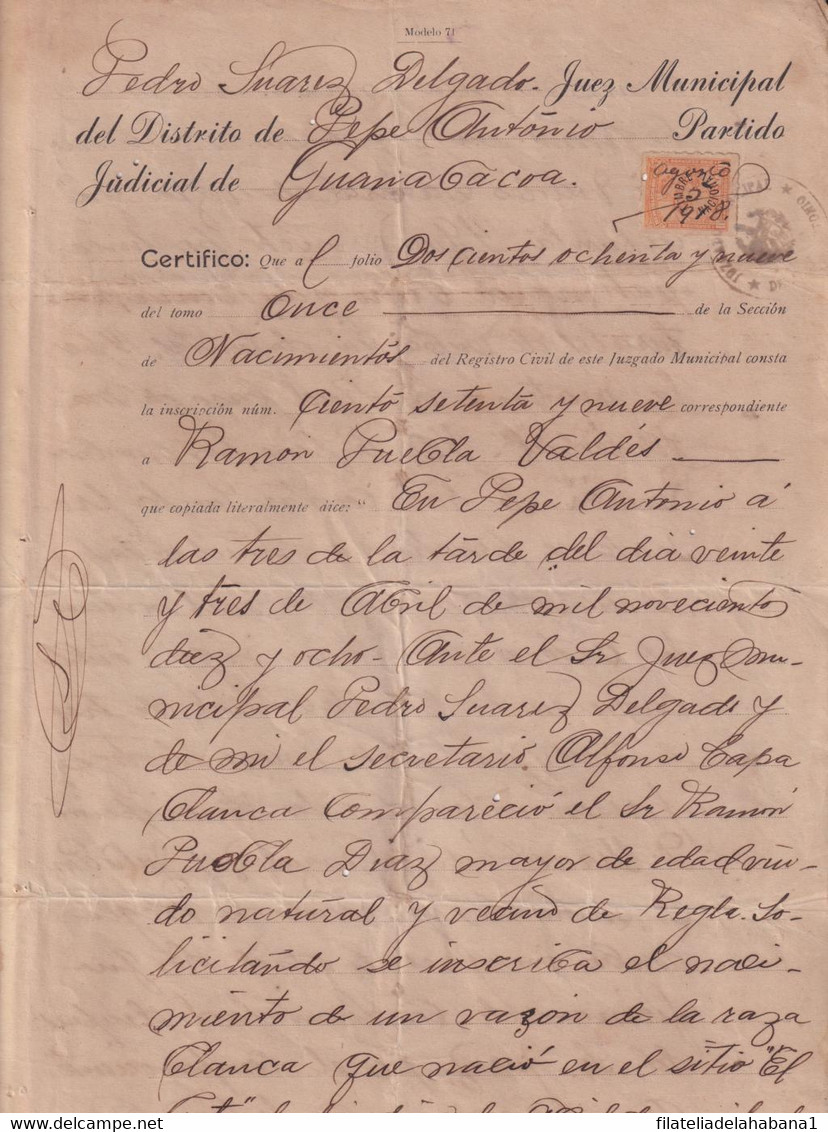 Modelo 71
Pedro Súarez Delgado. Juez Municipal
del Distrito de Pepe António Partido
Judicial de Guanabacoa.
Agosto
5
1918.
Certifico: Que al folio Doscientos ochenta y nueve
del tomo Once de la Sección
de Nacimientos del Registro Civil de este Juzgado Municipal consta
la inscripción núm. Ciento setenta y nueve correspondiente
a Ramon Puebla Valdés
que copiada literalmente dice: " En Pepe Antonio á
las tres de la tarde del dia veinte
y tres de Abril de mil noveciento
diez y ocho - Ante el Sr Juez mu-
nicipal Pedro Suarez Delgado y
de mi el secretario Alfonso Capa
blanca compareció el Sr Ramón
Puebla Diaz mayor de edad viu-
do natural y vecino de Regla. So-
licitando se inscriba el naci-
miento de un varón de la raza
blanca que nació en el sitio "El
filateliadelahabana1